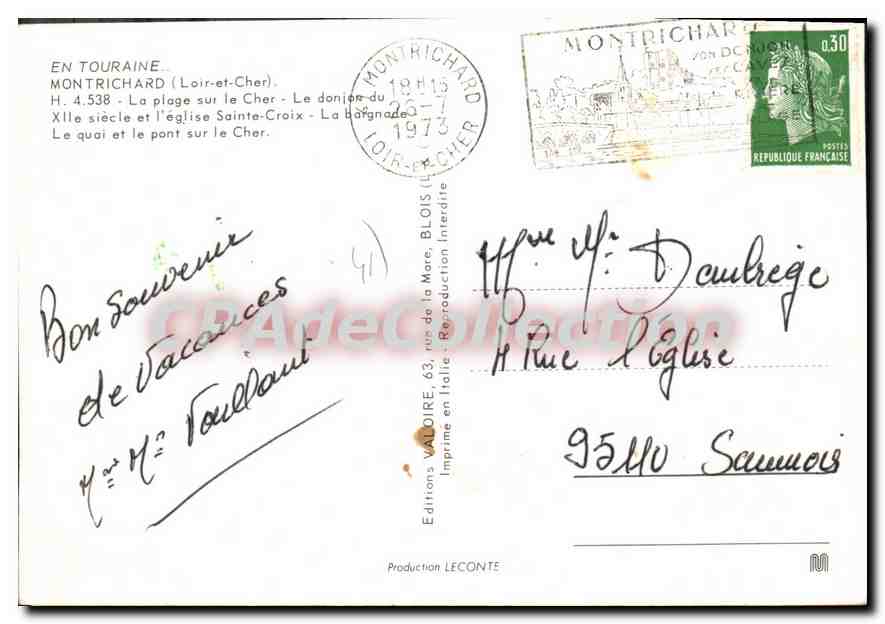 EN TOURAINE..
MONTRICHARD (Loir-et-Cher).
H. 4.538 - La plage sur le Cher - Le donjon du
XIIe siècle et l'église Sainte-Croix - La baignade
Le quai et le pont sur le Cher.
MONTRICHARD
18H15
26-7
1973
LOIR-ET-CHER
MONTRICHARD
SON DONJON
SES CAVES
0,30
POSTES
REPUBLIQUE FRANÇAISE
Bon Souvenir
de Vacances
Mme Mr Vaillant
41)
Editions VALOIRE, 63, rue de la Mare, BLOIS (L
Imprimé en Italie - Reproduction Interdite
Mme Mr Dambrège
4 Rue l'Eglise
95110 Sannois
CPAdeCollection
Production LECONTE